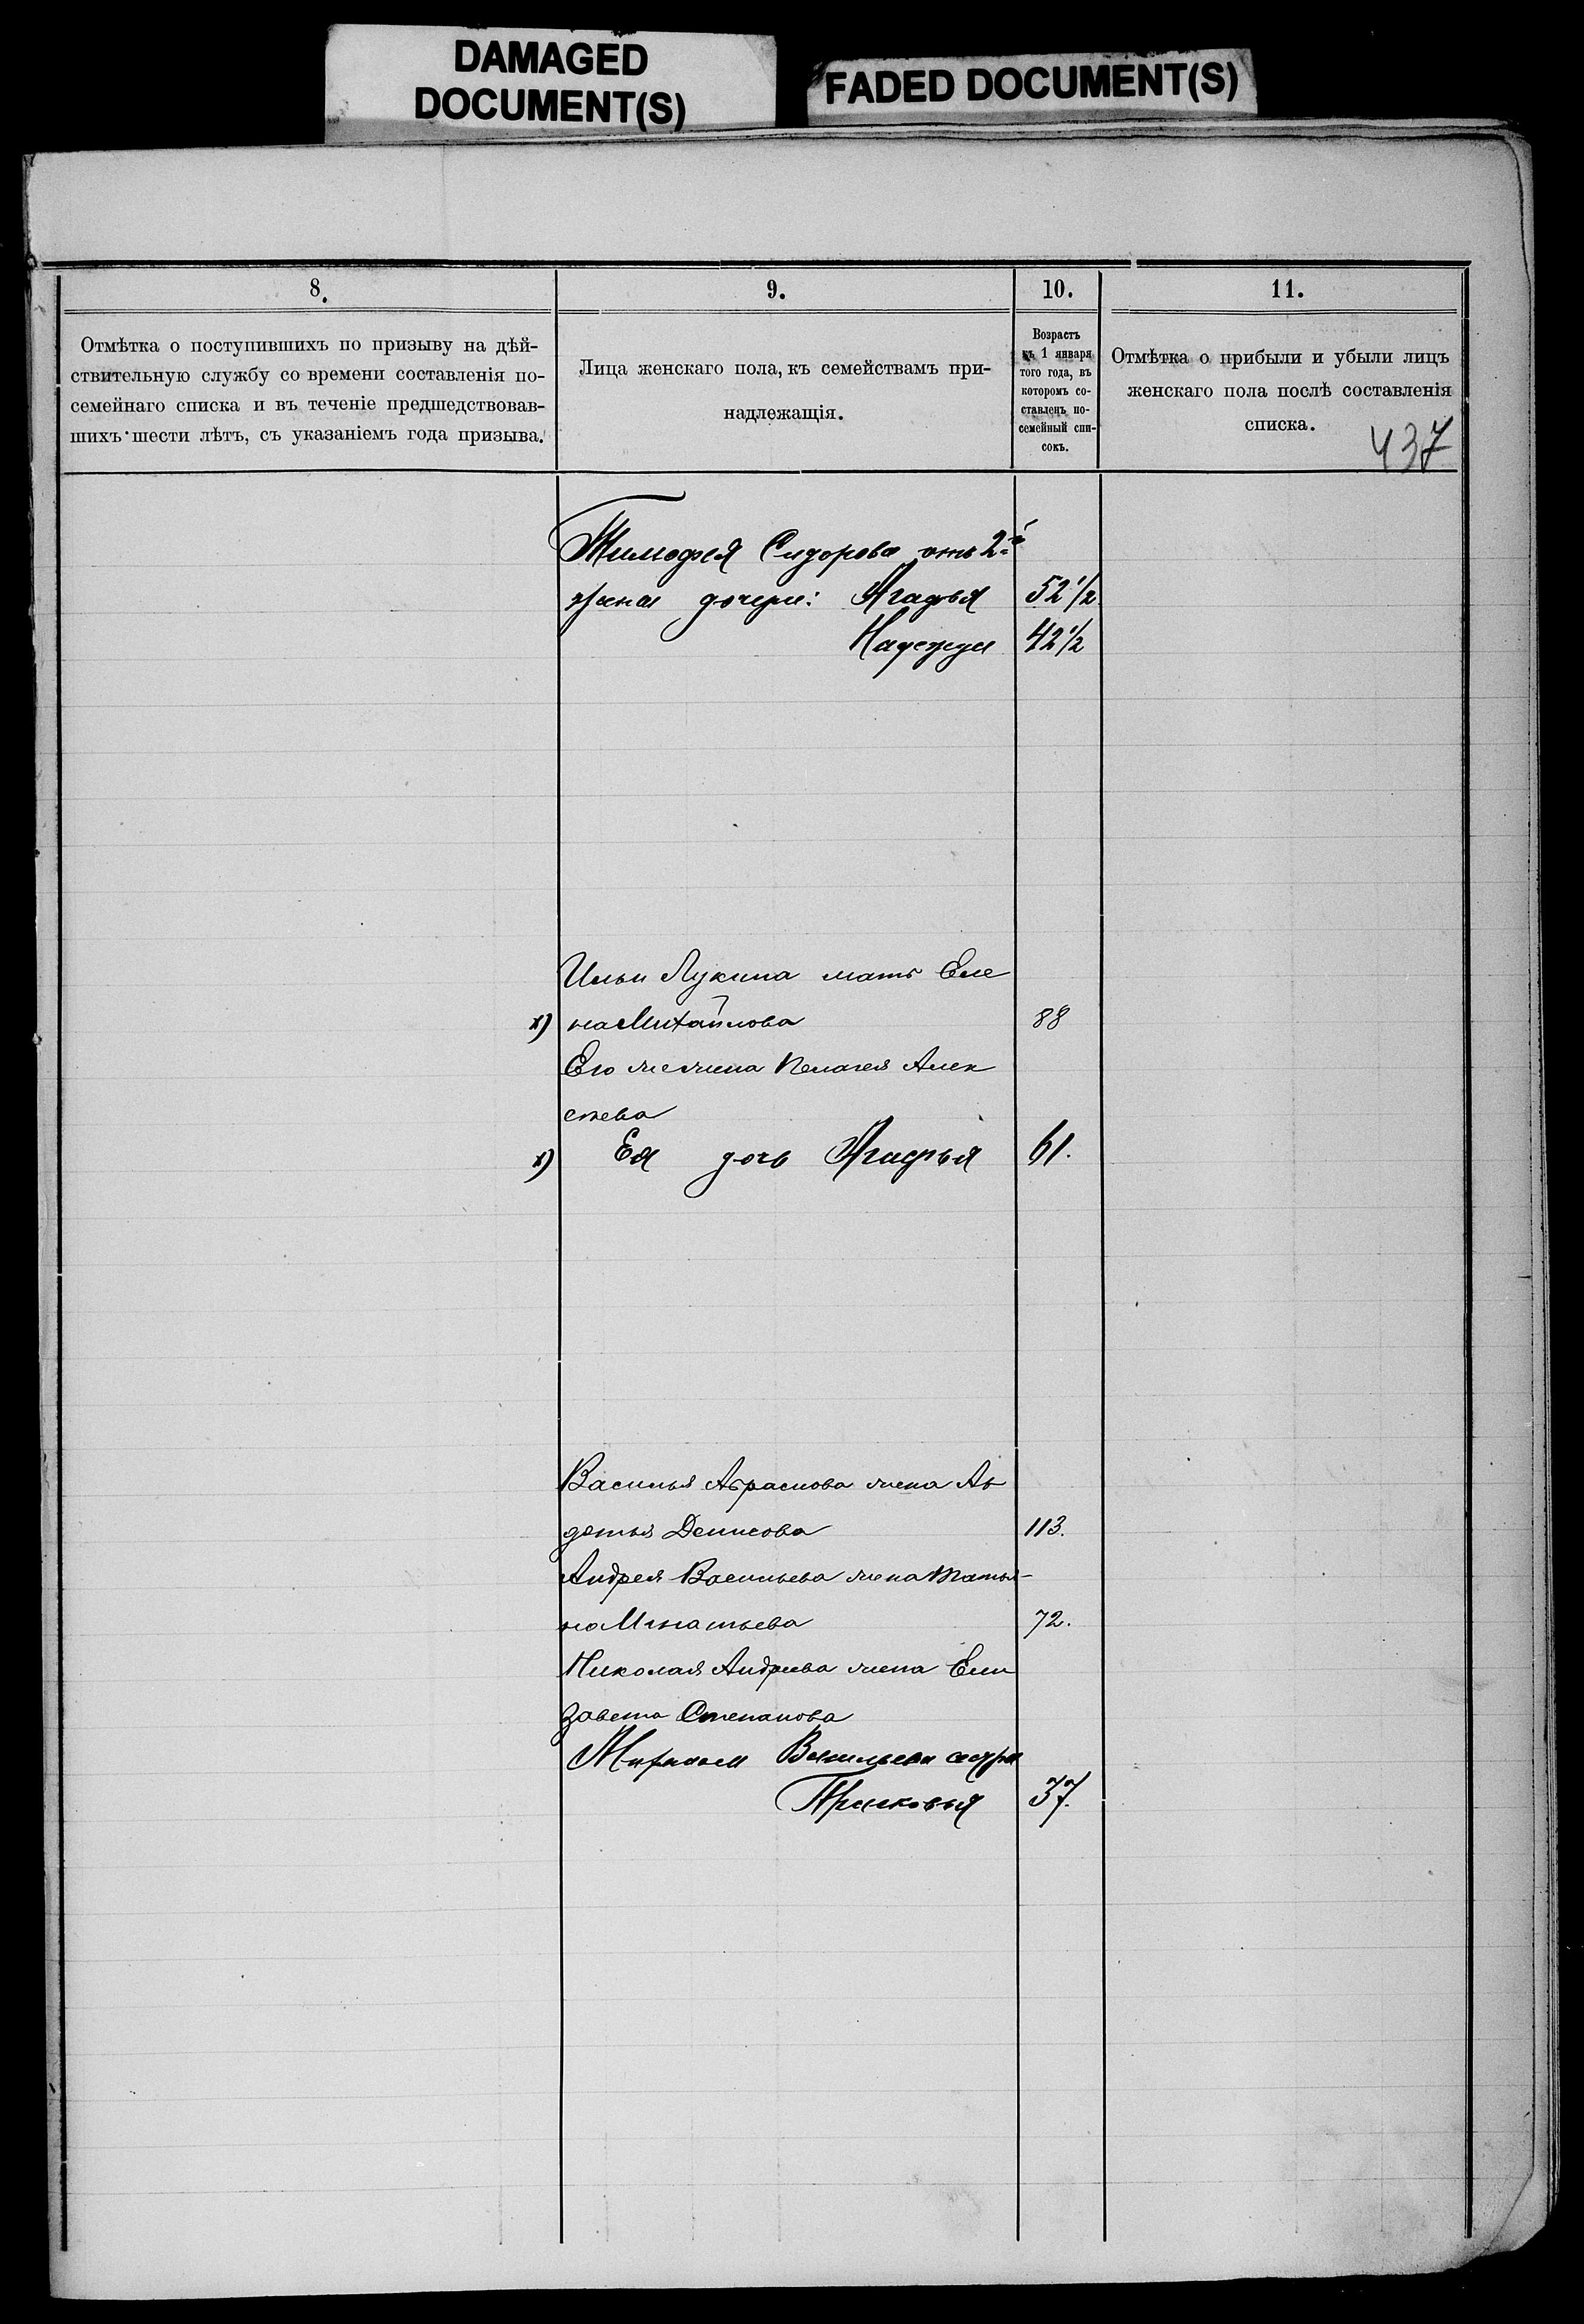 DAMAGED
DOCUMENT(S)
FADED DOCUMENT(S)
8.
Отмѣтка о поступившихъ по призыву на дѣй-
ствительную службу со времени составленія по-
семейнаго списка и въ теченіе предшедствовав-
шихъ шести лѣтъ, съ указаніемъ года призыва.
9.
Лица женскаго пола, къ семействамъ при-
надлежащія.
10.
Возрастъ
къ 1 января
того года, въ
которомъ со-
ставленъ по-
семейный спи-
сокъ.
11.
Отмѣтка о прибыли и убыли лицъ
женскаго пола послѣ составленія
списка.
437
Тимофея Сидорова отъ 2-й
жены дочери: Агафья 52 1/2
Надежда 42 1/2
Ильи Лукина мать Еле
х) на Михайлова 88
Его жена Пелагея Алек
сѣева
х) Ея дочь Агафья 61.
Василья Абрамова жена Ав
дотья Денисова 113.
Андрея Васильева жена Татья-
на Игнатьева 72.
Николая Андреева жена Ели
завета Степанова
Васильева сестра
Прасковья 37.